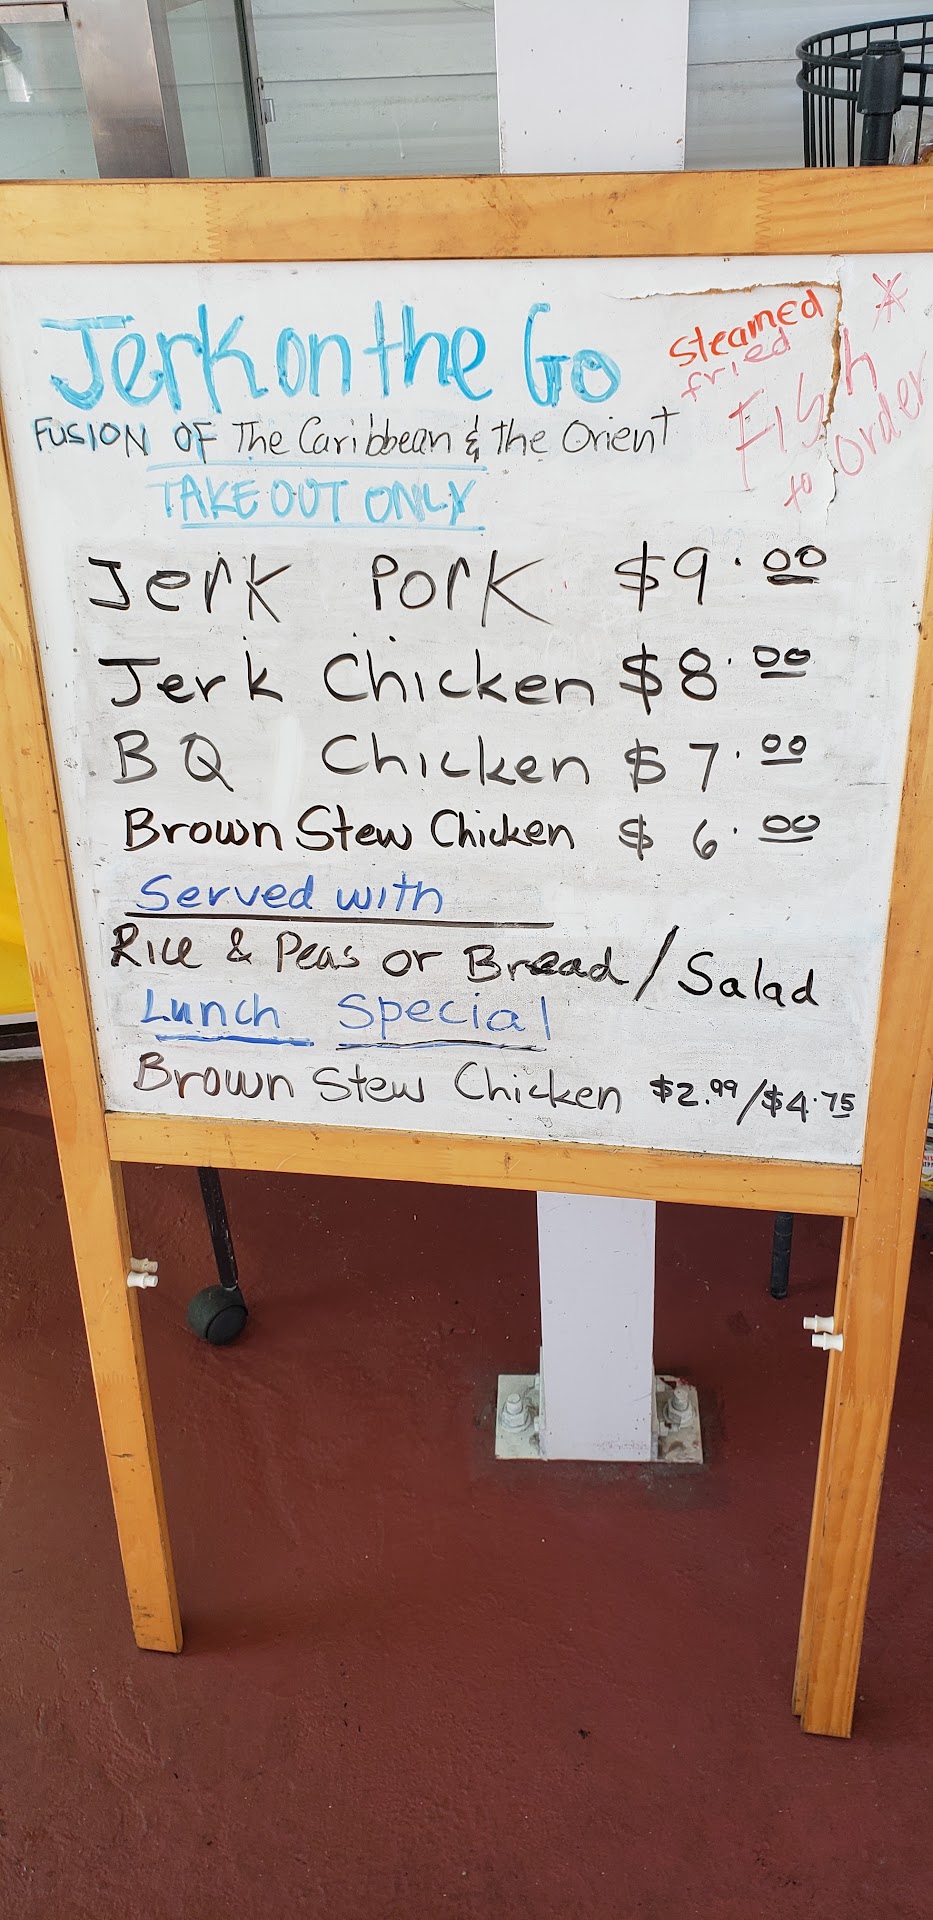 Jerk on the Go
steamed
fried
Fish
to Order
FUSION OF The Caribbean & the Orient
TAKE OUT ONLY
Jerk Pork $9.00
Jerk Chicken $8.00
BQ Chicken $7.00
Brown Stew Chicken $6.00
Served with
Rice & Peas or Bread/Salad
Lunch Special
Brown Stew Chicken $2.99/$4.75